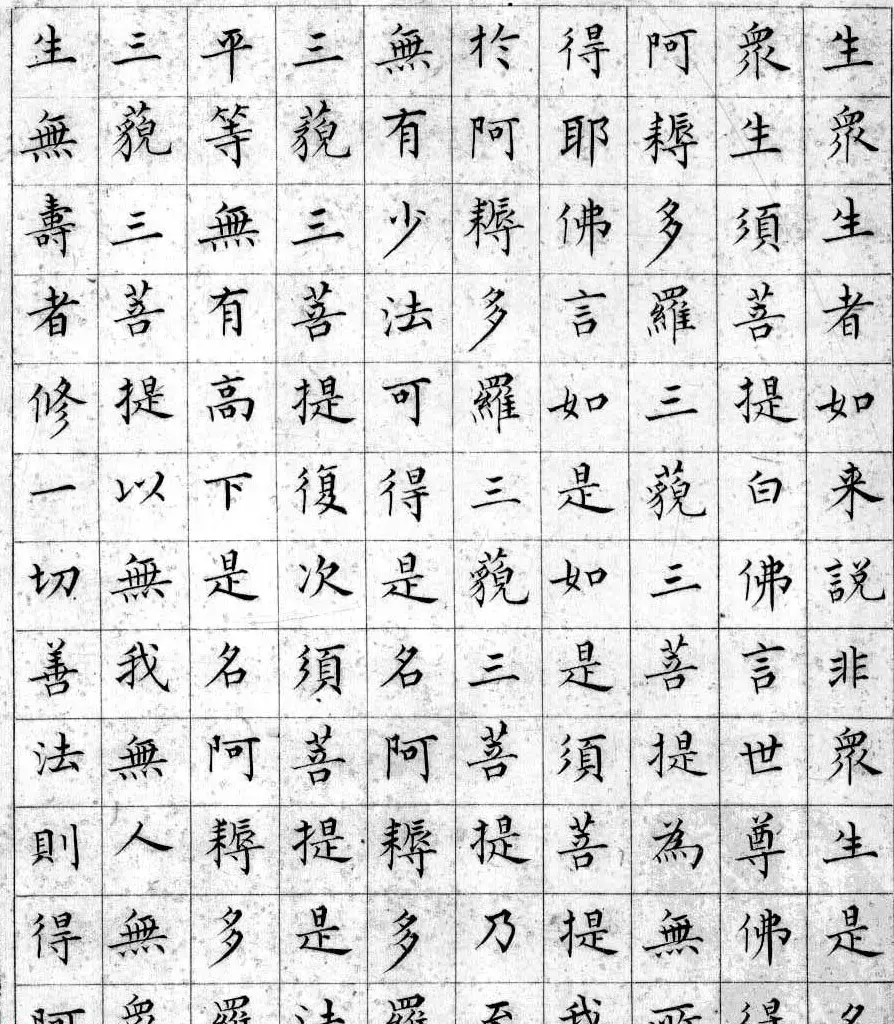 生衆生者如来説非衆生是名
衆生須菩提白佛言世尊佛得
阿耨多羅三藐三菩提為無所
得耶佛言如是如是須菩提我
於阿耨多羅三藐三菩提乃至
無有少法可得是名阿耨多羅
三藐三菩提復次須菩提是法
平等無有高下是名阿耨多羅
三藐三菩提以無我無人無衆
生無壽者修一切善法則得阿